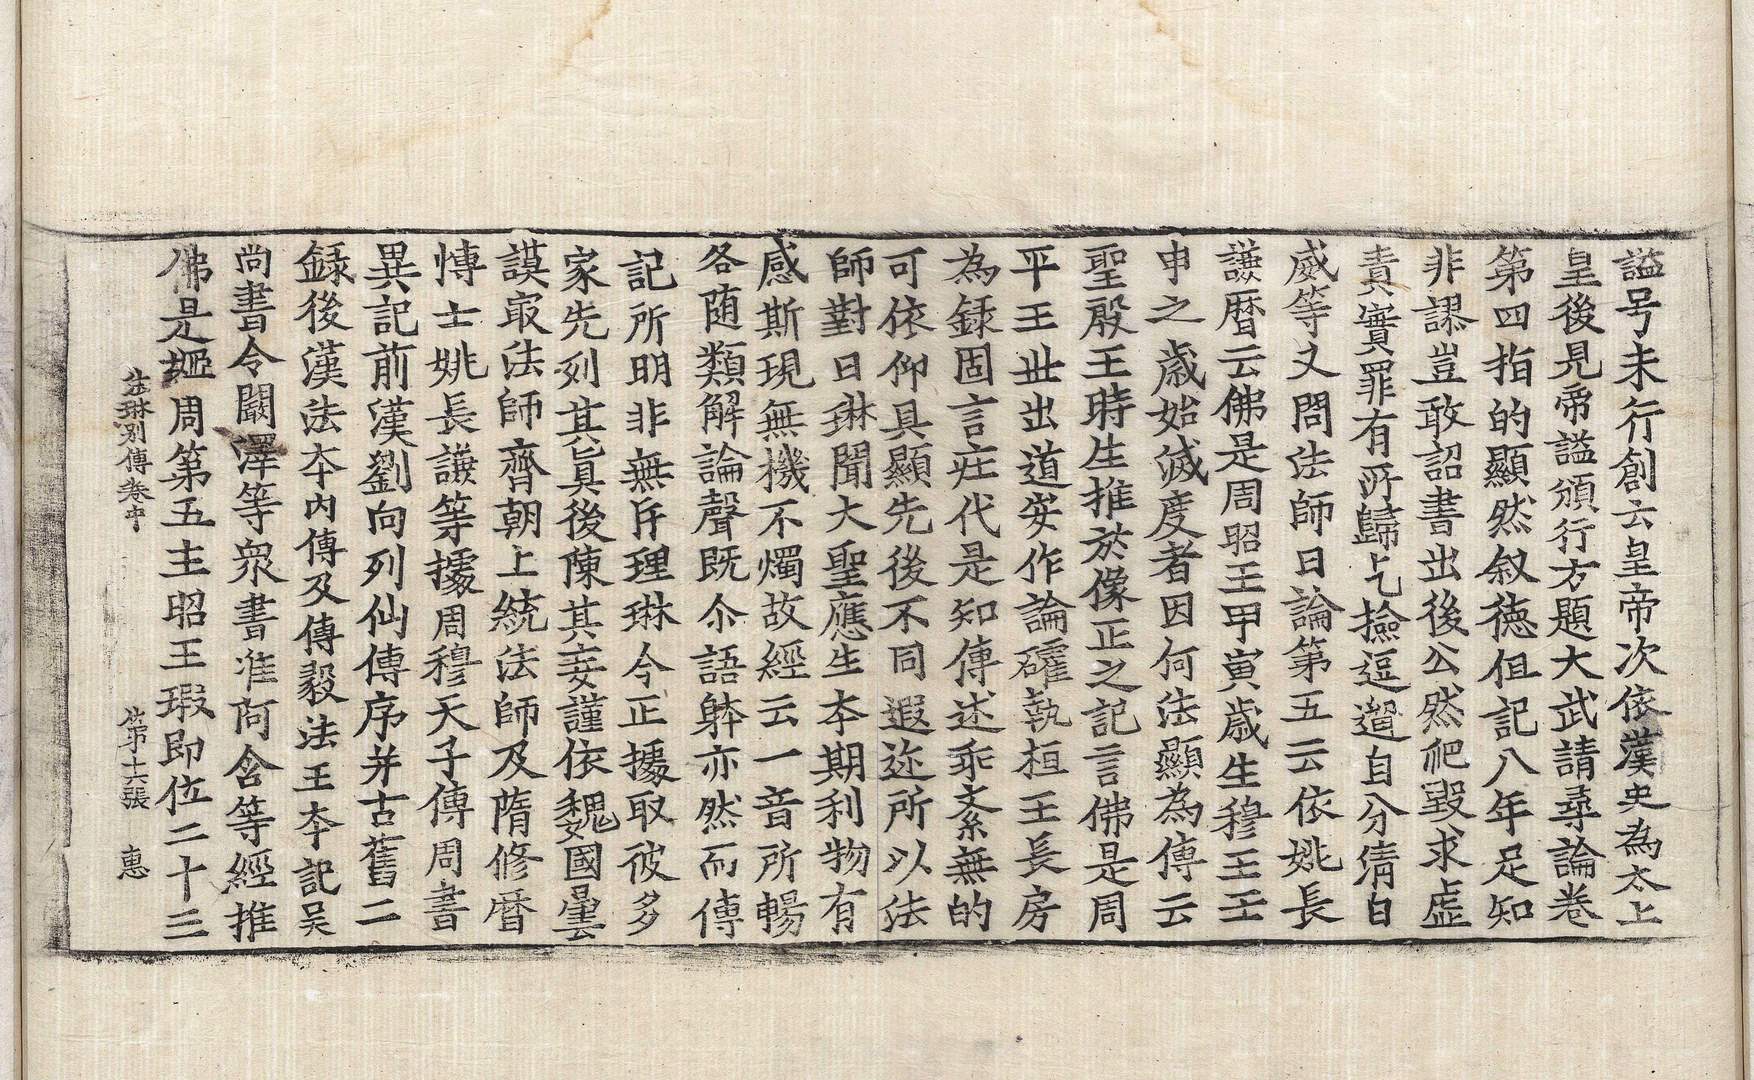 謚号未行創云皇帝次依漢史為太上
皇後見帝謚頒行方題大武請尋論卷
第四指的顯然叙德但記八年足知
非謬豈敢詔書出後公然爬毀求虛
責實罪有所歸乞撿逗遛自分清白
威等又問法師曰論第五云依姚長
謙曆云佛是周昭王甲寅歲生穆王壬
申之歲始滅度者因何法顯為傳云
聖殷王時生推於像正之記言佛是周
平王世出道安作論確執桓王長房
為錄固言疰代是知傳述乖紊無的
可依仰具顯先後不同遐迩所以法
師對曰琳聞大聖應生夲期利物有
感斯現無機不燭故經云一音所暢
各随類解論聲既尒語躰亦然而傳
記所明非無斥理琳今正據取彼多
家先列其眞後陳其妄謹依魏國曇
謨㝡法師齊朝上統法師及隋修曆
愽士姚長謙等據周穆天子傳周書
異記前漢劉向列仙傳序并古舊二
錄後漢法夲內傳及傅毅法王夲記吴
尚書令闞澤等衆書准阿含等經推
佛是姬周第五主昭王瑕即位二十三
法琳別傳卷中　第十六張　惠